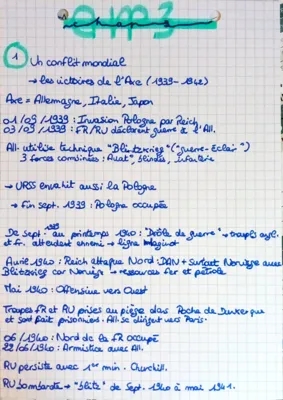 chap 3
① Un conflit mondial
→ les victoires de l'Axe (1939-1942)
Axe = Allemagne, Italie, Japon
01/09/1939 : Invasion Pologne par Reich
03/09/1939 : FR/RU déclarent guerre à l'All.
All. utilise technique "Blitzkrieg" ("guerre-éclair")
3 forces combinées : Aviat°, blindés, infanterie
→ URSS envahit aussi la Pologne
→ Fin sept. 1939 : Pologne occupée
De sept. 1939 au printemps 1940 : "Drôle de guerre" → troupes agl.
et fr. attendent ennemi → ligne Maginot
Avril 1940 : Reich attaque Nord DAN + surtout Norvège avec
Blitzkrieg car Norvège → ressources fer et pétrole
Mai 1940 : Offensive vers Ouest
Troupes FR et RU prises au piège dans Poche de Dunkerque
et sont fait prisonniers. All. se dirigent vers Paris.
06/1940 : Nord de la FR occupé
22/06/1940 : Armistice avec All.
RU persiste avec 1er min. Churchill.
RU bombardé → "blitz" de sept. 1940 à mai 1941.